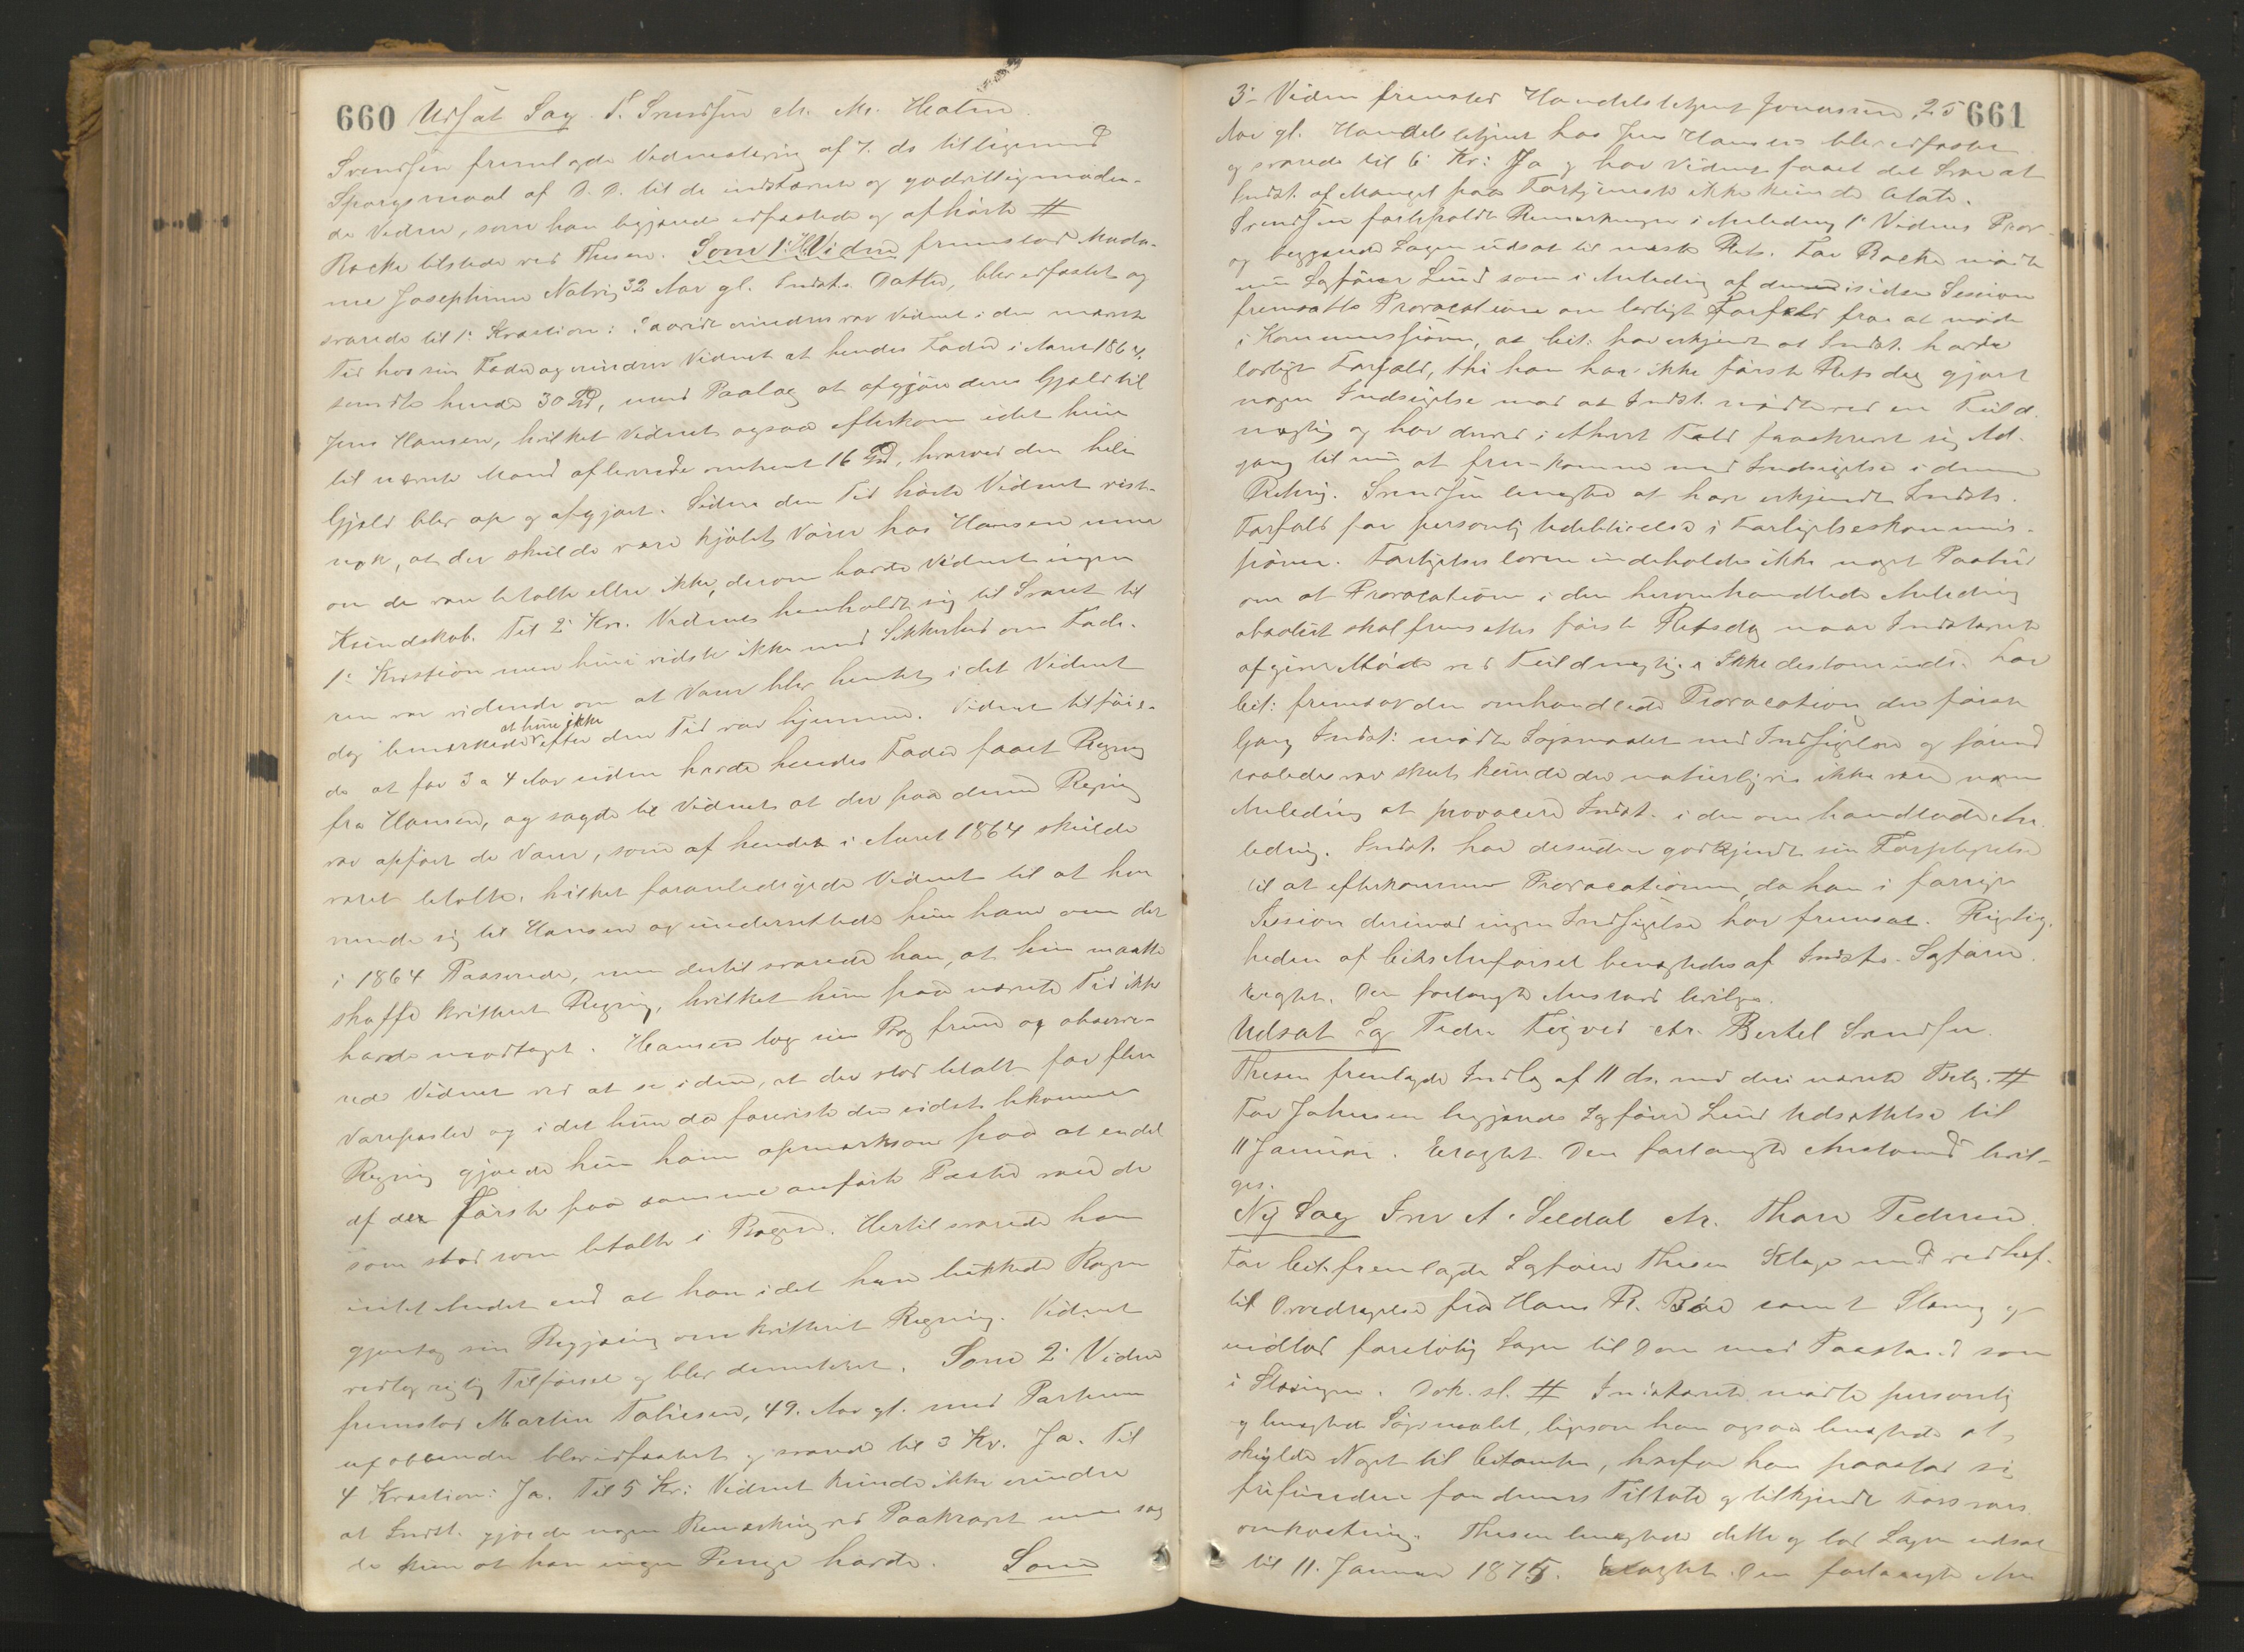 660 Udsat Sag S. Svendsen
Svendsen fremlagde Vidnestevning af 7. ds tilligemed
Spørgsmaal af D. D. til de indstævnte og godvilligmøden-
de Vidner, som han begjærede edfæstede og afhørte #
Backe tilstede ved Thesen. Som 1ste Vidne fremstod Mada-
me Josephine Natvig 32 Aar gl. Indst. Datter, blev edfæstet og
svarede til 1ste Kvæstion: Saavidt erindres var Vidnet i den nævnte
Tid hos sin Fader og erindrer Vidnet at hendes Fader i Aaret 1864
sendte hende 30 Spd, med Paalæg at afgjøre deres Gjæld til
Jens Hansen, hvilket Vidnet ogsaa efterkom idet hun
til nævnte Mand afleverede omtrent 16 Spd, hvorved den hele
Gjæld blev op og afgjort. Siden den Tid hørte Vidnet vist-
nok, at der skulde være kjøbt Varer hos Hansen men
om de vare betalte eller ikke, derom havde Vidnet ingen
Kundskab. Til 2 Kv. Vidnet henholdt sig til Svaret til
1ste Kvæstion men hun vidste ikke med Sikkerhed om Fade-
ren var vidende om at Varer blev hentet, idet Vidnet
dog bemærkede at hun ikke efter den Tid var hjemme. Vidnet tilføie-
de at for 3 a 4 Aar siden havde hendes Fader faaet Regning
fra Hansen, og sagde til Vidnet at der paa denne Regning
var opført de Varer, som af hende i Aaret 1864 skulde
været betalte, hvilket foranledigede Vidnet til at hen
vende sig til Hansen og underrettede hun ham om det
i 1864 Passerede, men dertil svarede han, at hun maatte
skaffe kvitteret Regning, hvilket hun paa nævnte Tid ikke
havde modtaget. Hansen tog sin Bog frem og observe-
rede Vidnet ved at se i den, at der stod betalt for flere
Vareposter og idet hun da foreviste den sidst bekomne
Regning gjorde hun ham opmærksom paa at endel
af de første paa samme anførte Poster vare de
som stod som betalte i Bogen. Hertil svarede han
intet Andet end at han idet han lukkede Bogen
gjentog sin Begjæring om kvitteret Regning. Vidnet
vedtog rigtig Tilførsel og blev demitteret. Som 2 Vidne
fremstod Martin Tobiesen, 49. Aar gl. med Parterne
ubeslægtet blev edfæstet og svarede til 3 Kv. Ja. Til
4 Kvæstion: Ja. Til 5 Kv: Vidnet kunde ikke erindre
at Indst. gjorde nogen Bemærkning ved Paakravet men sag
de kun at han ingen Penge havde. Som
3- Vidne fremstod Handelsbetjent Jonassen, 25 661
Aar gl. Handelsbetjent hos Jens Hansen blev edfæstet
og svarede til 6 Kv: Ja og har Vidnet faaet det Svar at
Indst. af Mangel paa Fortjeneste ikke kunde betale.
Svendsen forbeholdt Bemærkninger i Anledning 1ste Vidnes Prov
og begjærede Sagen udsat til næste Ret. For Backe mødte
nu Sagfører Lund som i Anledning af den i sidste Session
fremsatte Provocation om lovligt Forfald fra at møde
i Kommissionen, at Cit: har erkjendt at Indst. havde
lovligt Forfald, thi han har ikke første Retsdag gjort
nogen Indsigelse mod at Indst. mødte ved en Fuld-
mægtig og har derved i ethvert Fald fraskrevet sig Ad-
gang til nu at fremkomme med Indsigelse i denne
Retning. Svendsen benægted at have erkjendt Indsts.
Forfald for personlig Udeblivelse i Forligelseskommis-
sionen. Forligelsesloven indeholder ikke noget Paabud
om at Provocationen i den heromhandlede Anledning
absolut skal fremsættes første Retsdag naar Indstævnte
afgiver Møde ved Fuldmægtig. Ikke destomindre har
Cit: fremsat den omhandlede Provocation den første
Gang Indst: mødte Søgsmaalet med Indsigelse og førend
saadan var skeet kunde der naturligvis ikke være nogen
Anledning at provocere Indst. i den omhandlede An
ledning. Indst. har desuden godkjendt sin Forpligtelse
til at efterkomme Provocationen, da han i forrige
Session derimod ingen Indsigelse har fremsat. Rigtig-
heden af Cits Anførsel benægtedes af Indsts. Sagfører.
Eragtet. Den forlangte Anstand bevilges.
Udsat Sag Peder Tigved ctr. Bertel Svendsen
Thesen fremlagde Indlæg af 11 ds. med deri nævnte Bilag. #
For Johnsen begjærede Sagfører Lund Udsættelse til
11 Januar. Eragtet. Den forlangte Anstand bevil-
ges.
Ny Sag Iver A. Seldal ctr. Thore Pedersen.
For Cit. fremlagde Sagfører Thesen Klage med vedhef-
tet Overdragelse fra Hans R. Bøe samt Stevning og
indlod foreløbig Sagen til Dom med Paastand som
i Stevningen. Dok. sl. # Indstævnte mødte personlig
og benægtede Søgsmaalet, ligesom han ogsaa benægtede at
skylde Noget til Citanten, hvorfor han paastod sig
frifunden for dennes Tiltale og tilkjendt Forsvars
omkostning. Thesen benægtede dette og lod Sagen udsat
til 11. Januar 1875. Eragtet. Den forlangte An